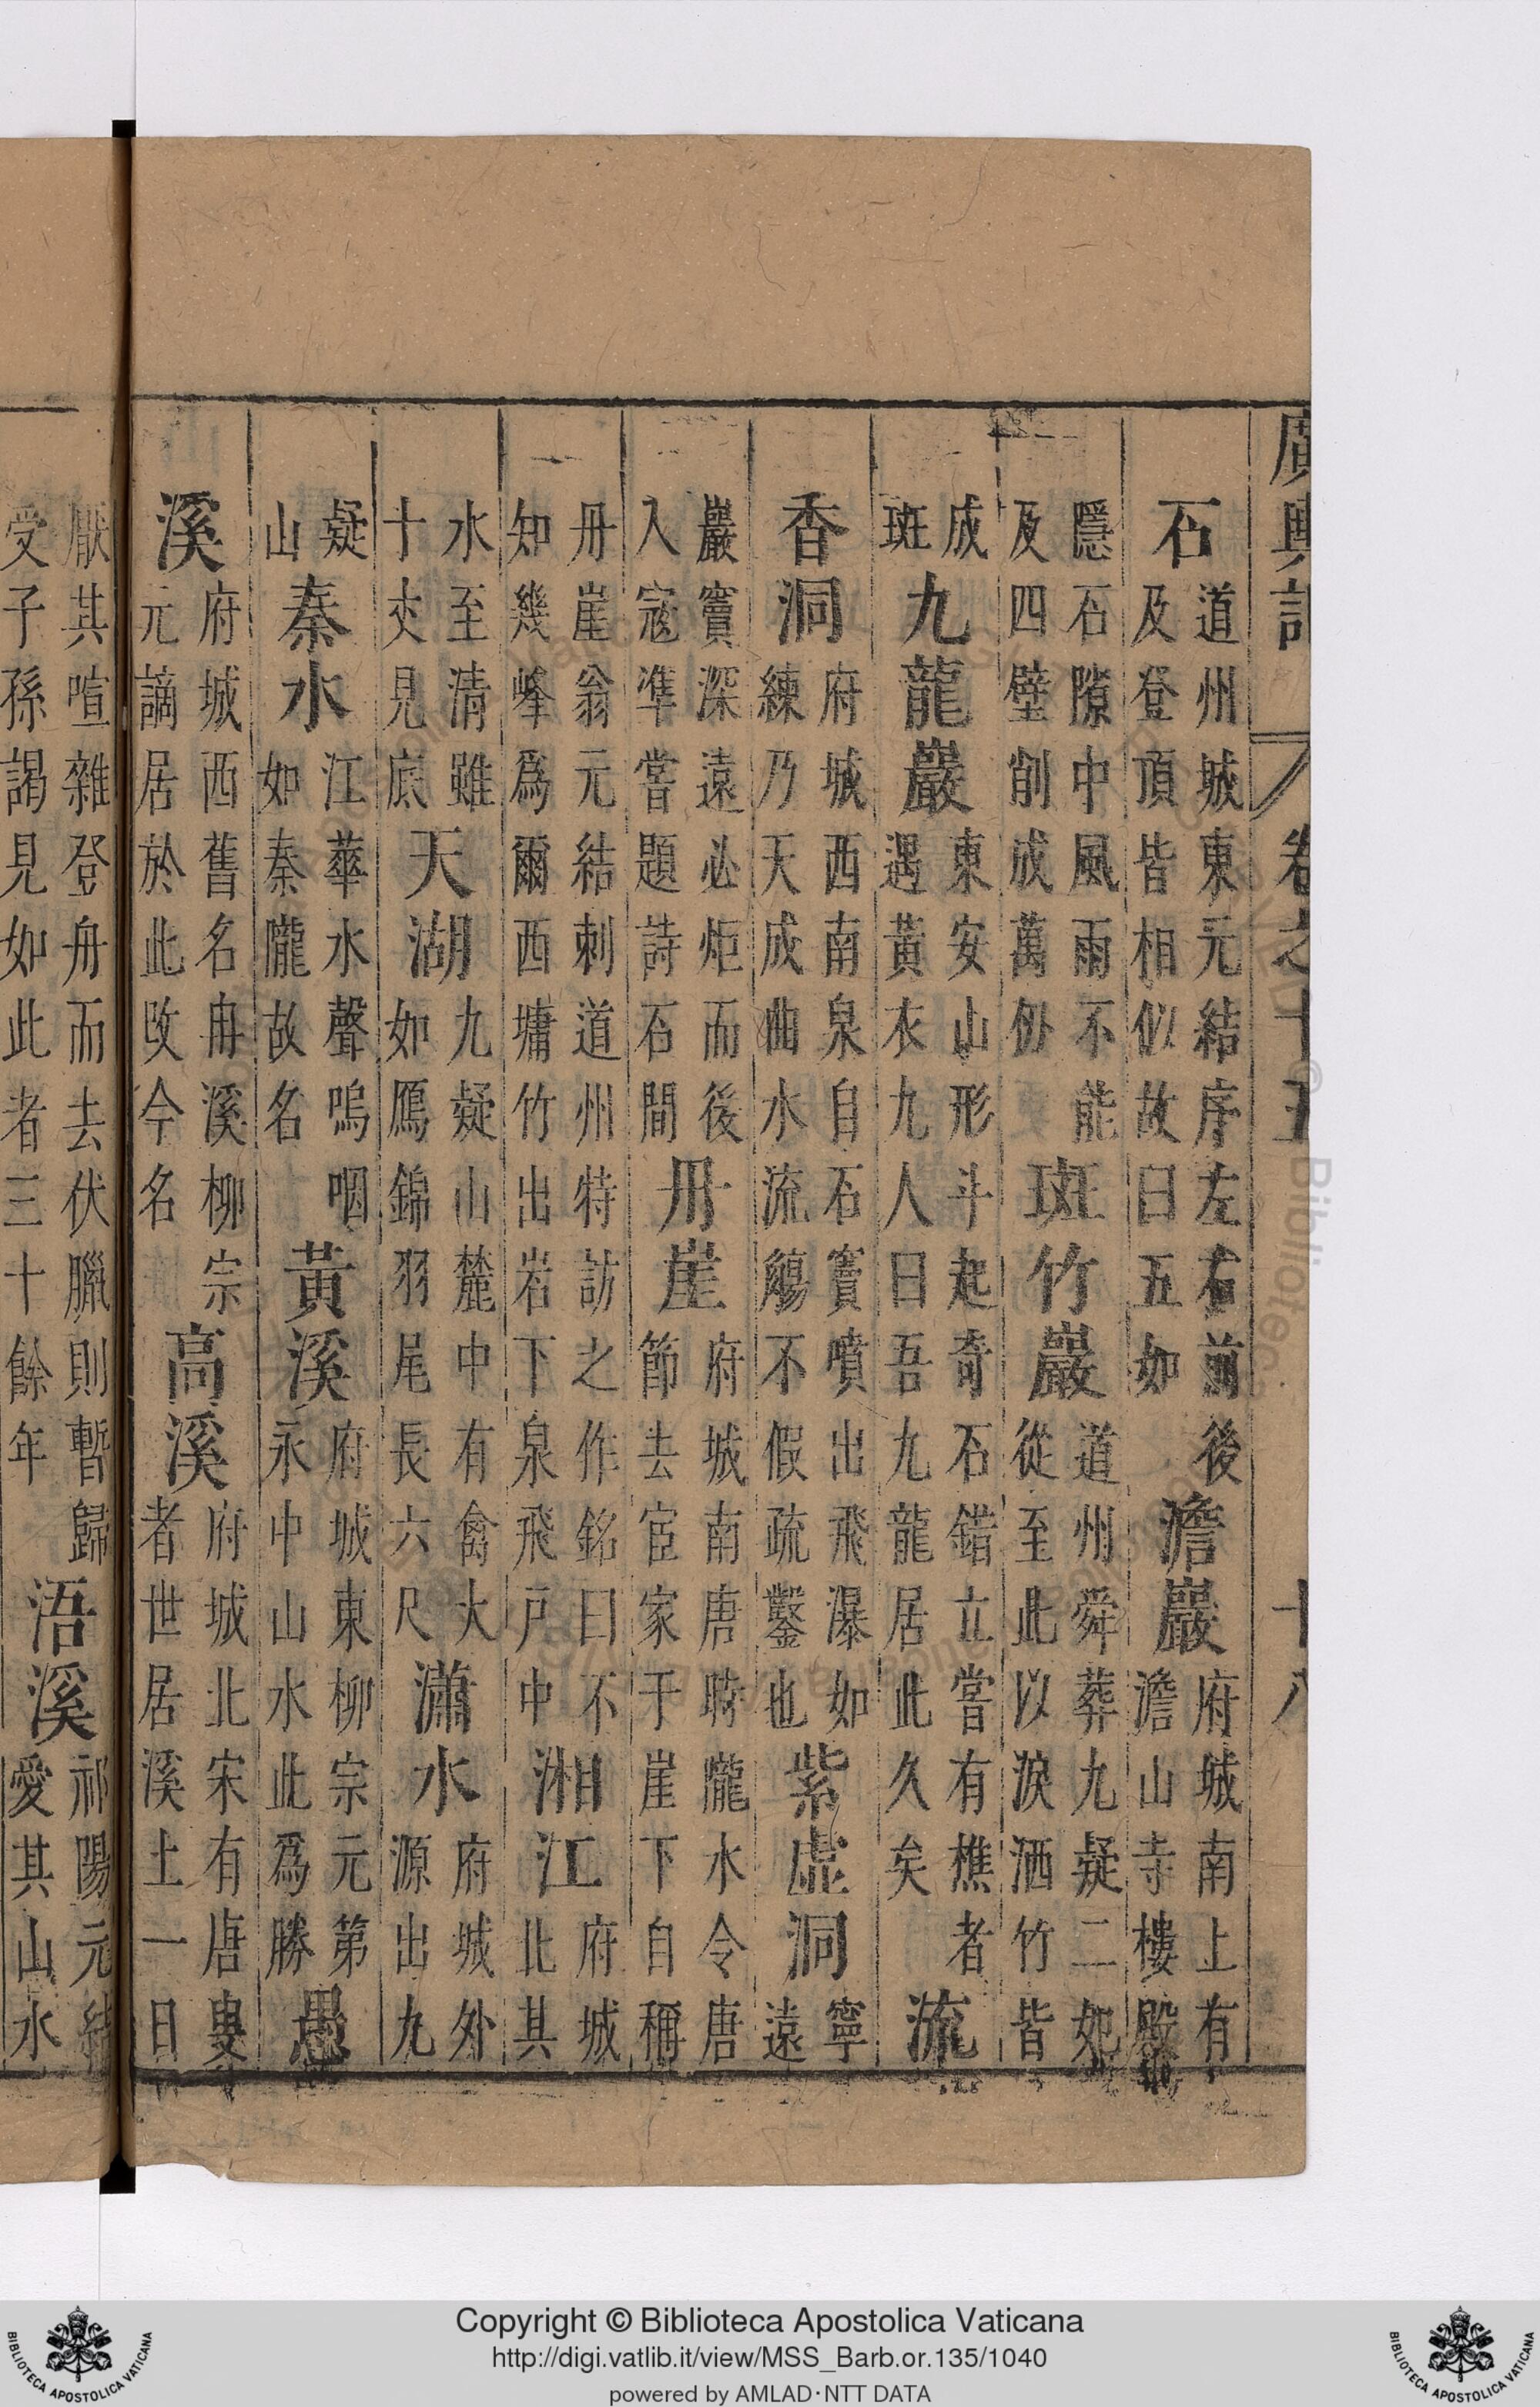 廣輿記 卷之十五 十八
石道州城東元結序左右前後及登頂皆相似故曰五如澹巖府城南上有澹山寺樓殿
隱石隙中風雨不能及四壁削成萬仞斑竹巖道州舜葬九疑二妃從至此以淚洒竹皆
成斑九龍巖東安山形斗起奇石錯立嘗有樵者遇黃衣九人曰吾九龍居此久矣流
香洞府城西南泉自石竇噴出飛瀑如練乃天成曲水流觴不假疏鑿也紫虛洞寧遠
巖竇深遠必炬而後入寇準嘗題詩石間丹崖府城南唐時瀧水令唐節去宦家于崖下自稱
丹崖翁元結刺道州特訪之作銘曰不知幾峰爲爾西墉竹出岩下泉飛戶中湘江府城北其
水至清雖十丈見底天湖九疑山麓中有禽大如鴈錦羽尾長六尺瀟水府城外源出九
疑山秦水江華水聲嗚咽如秦隴故名黃溪府城東柳宗元第永中山水此爲勝愚
溪府城西舊名冉溪柳宗元謫居於此改今名高溪府城北宋有唐叟者世居溪上一日
厭其喧雜登舟而去伏臘則暫歸受子孫謁見如此者三十餘年浯溪祁陽元結愛其山水
Copyright © Biblioteca Apostolica Vaticana
http://digi.vatlib.it/view/MSS_Barb.or.135/1040
powered by AMLAD·NTT DATA
BIBLIOTECA APOSTOLICA VATICANA
BIBLIOTECA APOSTOLICA VATICANA